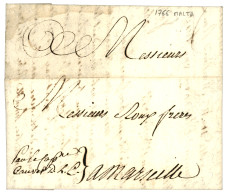 1766 MALTE
Messieurs
Messieurs Roux freres
Par le Capne
a Marseille